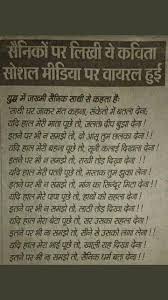 सैनिकों पर लिखी ये कविता
सोशल मीडिया पर वायरल हुई
युद्ध में जख्मी सैनिक साथी से कहता है:
'साथी घर जाकर मत कहना, संकेतो में बतला देना;
यदि हाल मेरी माता पूछे तो, जलता दीप बुझा देना!
इतने पर भी न समझे तो, दो आंसू तुम छलका देना!!
यदि हाल मेरी बहना पूछे तो, सूनी कलाई दिखला देना!
इतने पर भी न समझे तो, राखी तोड़ दिखा देना!!
यदि हाल मेरी पत्नी पूछे तो, मस्तक तुम झुका लेना!
इतने पर भी न समझे तो, मांग का सिन्दूर मिटा देना!!
यदि हाल मेरे पापा पूछे तो, हाथों को सहला देना!
इतने पर भी न समझे तो, लाठी तोड़ दिखा देना!!
यदि हाल मेरा बेटा पूछे तो, सर उसका सहला देना!
इतने पर भी न समझे तो, सीने से उसको लगा लेना!!
यदि हाल मेरा भाई पूछे तो, खाली राह दिखा देना!
इतने पर भी न समझे तो, सैनिक धर्म बता देना!